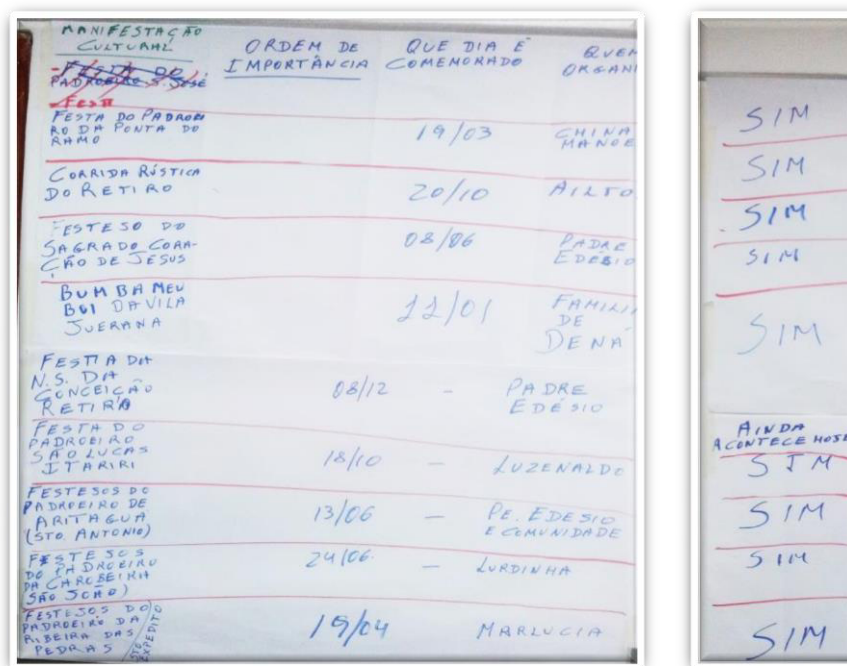 MANIFESTAÇÃO
CULTURAL
ORDEM DE
IMPORTÂNCIA
QUE DIA É
COMEMORADO
QUEM
ORGANI
- FESTA DO
PADROEIRO S. JOSÉ
- FEST
FESTA DO PADROEI
RO DA PONTA DO
RAMO
19/03
CHINA
MANOE
CORRIDA RÚSTICA
DO RETIRO
20/10
AILTO
FESTESO DO
SAGRADO CORA-
ÇÃO DE JESUS
08/06
PADRE
EDÉSIO
BUMBA MEU
BOI DA VILA
JUERANA
/01
FAMILI
DE
DENA
FESTA DA
N.S. DA
CONCEIÇÃO
RETIRO
08/12 -
PADRE
EDÉSIO
FESTA DO
PADROEIRO
SÃO LUCAS
ITARIRI
18/10 -
LUZENALDO
FESTESOS DO
PADROEIRO DE
ARITAGUA
(STO. ANTONIO)
13/06 -
PE. EDESIO
E COMUNIDADE
FESTESOS
DO PADROEIRO
DA CAROBEIRA
SÃO JOÃO)
24/06. -
LURDINHA
FESTEJOS DO
PADROEIRO DA
RIBEIRA DAS
PEDRAS
STO EXPEDITO
19/04
MARLUCIA
SIM
SIM
SIM
SIM
SIM
AINDA
ACONTECE HOJE
SIM
SIM
SIM
SIM